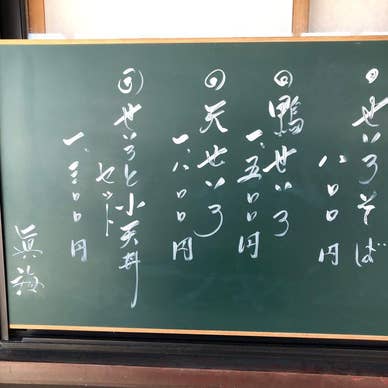 ◎せいろそば
八〇〇円
◎鴨せいろ
一、五〇〇円
◎天せいろ
一、八〇〇円
◎せいろと小天丼
セット
一、三〇〇円